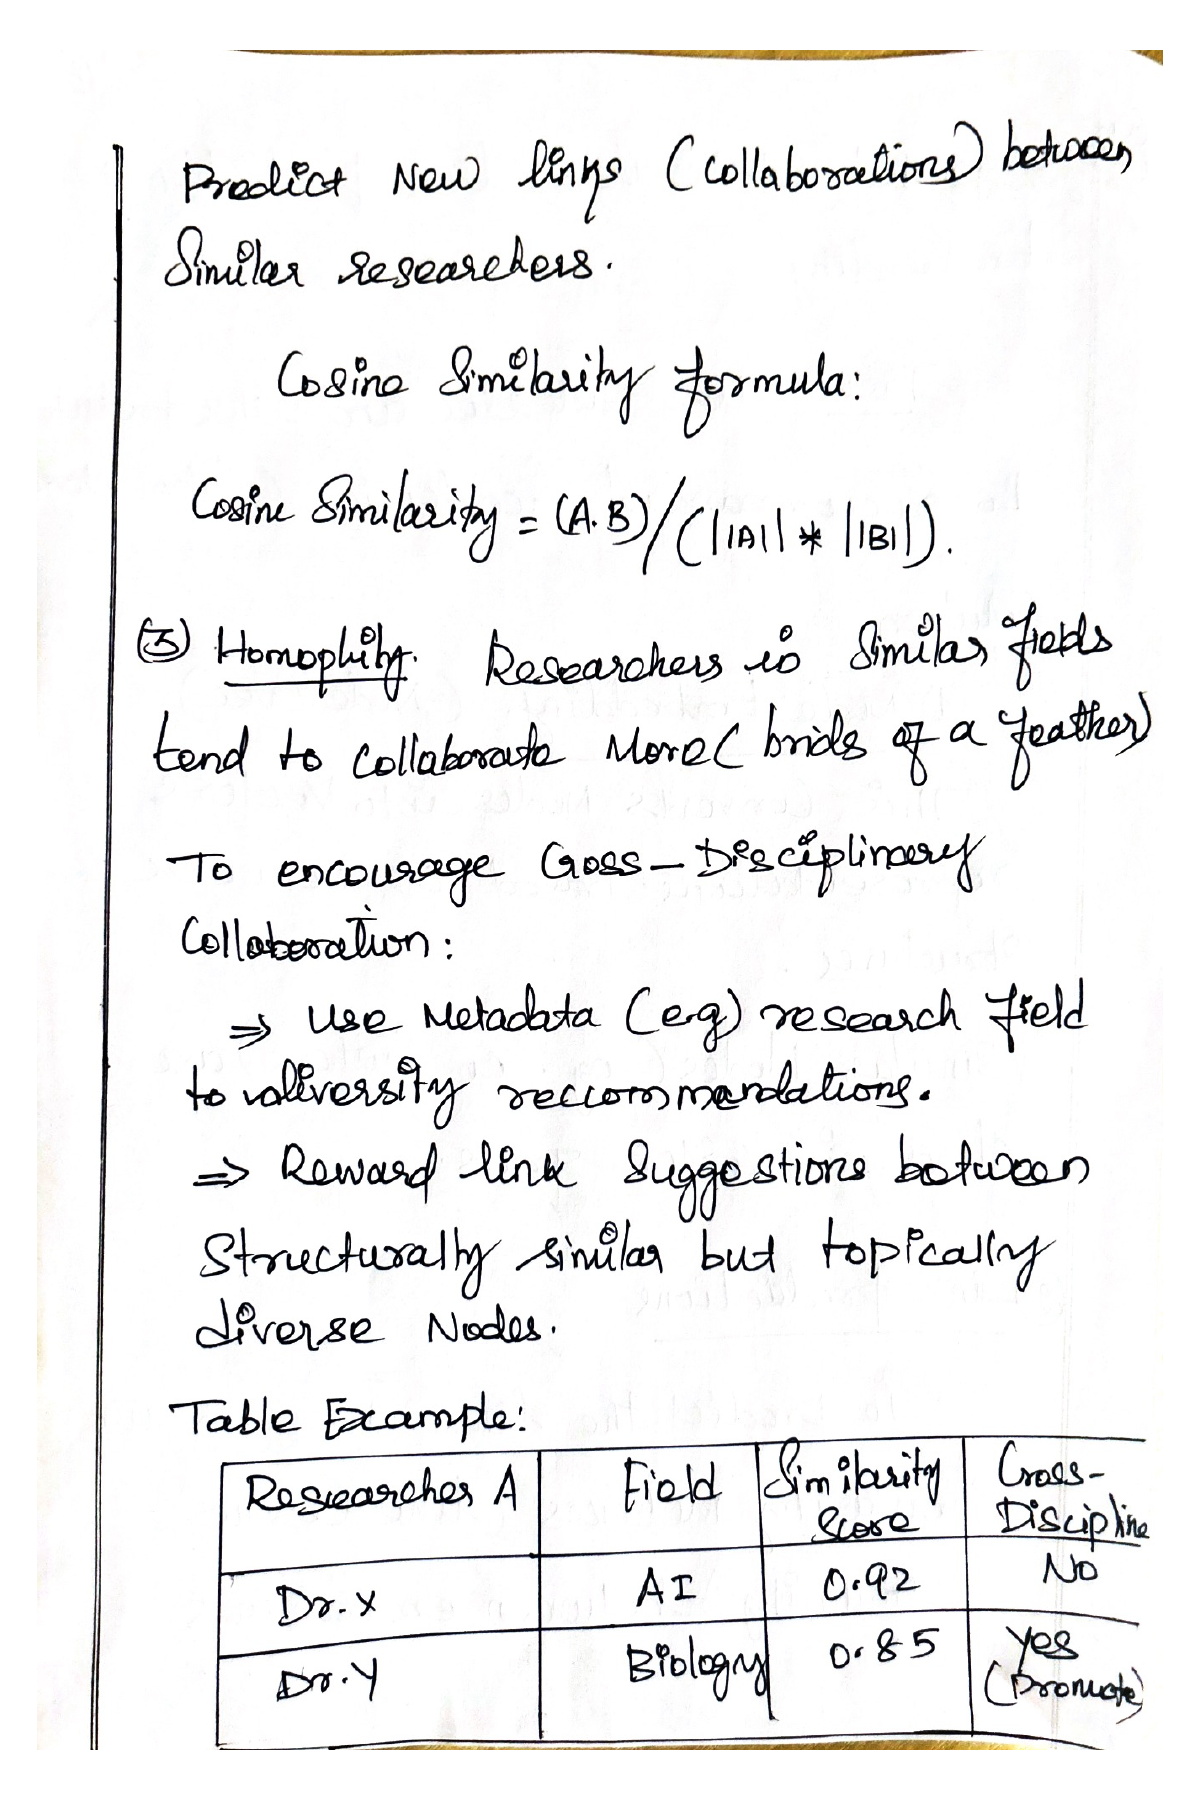 Predict New links (collaborations) between
Similar researchers.
Cosine Similarity formula:
Cosine Similarity = (A.B)/(||A|| * ||B||).
(3) Homophily. Researchers in Similar fields
tend to collaborate More (brids of a feather)
To encourage Cross-Disciplinary
Collaboration:
⇒ Use Metadata (e.g) research field
to diversity reccommendations.
⇒ Reward link Suggestions between
Structurally similar but topically
diverse Nodes.
Table Example:
Researcher A | Field | Similarity Score | Cross-Discipline
Dr.X | AI | 0.92 | No
Dr.Y | Biology | 0.85 | Yes (Promote)